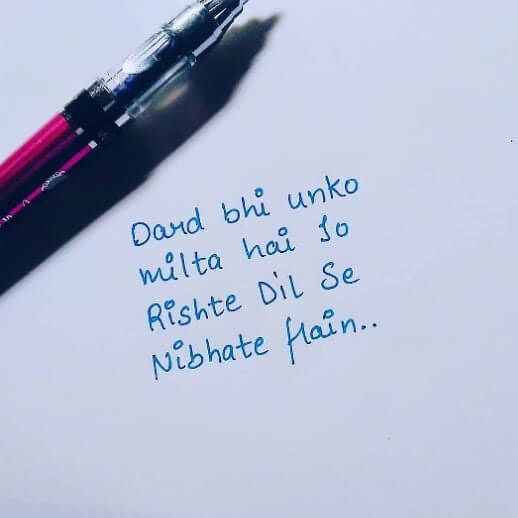 Dard bhi unko
milta hai Jo
Rishte Dil Se
Nibhate Hain..